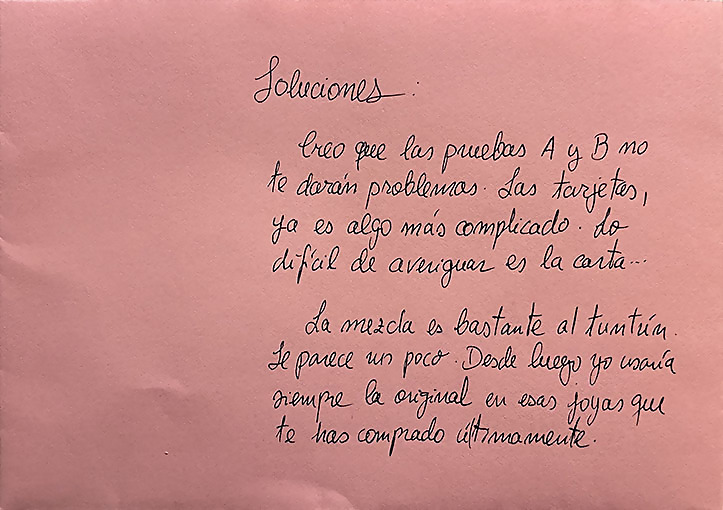 Soluciones:
Creo que las pruebas A y B no
te darán problemas. Las tarjetas,
ya es algo más complicado. Lo
difícil de averiguar es la carta...
La mezcla es bastante al tuntún.
Se parece un poco. Desde luego yo usaría
siempre la original en esas joyas que
te has comprado últimamente.